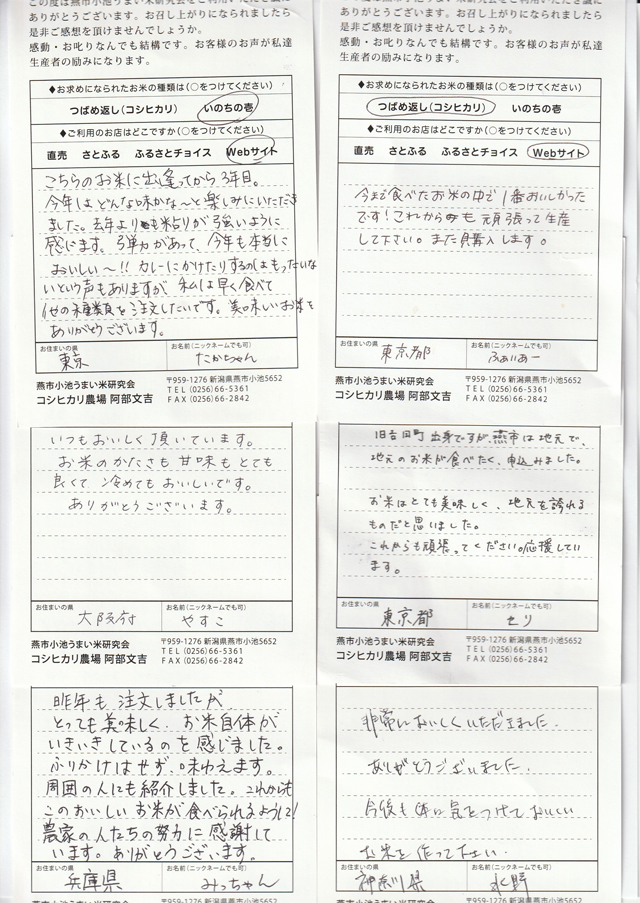 この度は燕市小池うまい米研究会をご利用いただき誠に
ありがとうございます。お召し上がりになられましたら
是非ご感想を頂けませんでしょうか。
感動・お叱りなんでも結構です。お客様のお声が私達
生産者の励みになります。
◆お求めになられたお米の種類は(○をつけてください)
つばめ返し(コシヒカリ) いのちの壱
◆ご利用のお店はどこですか(○をつけてください)
直売 さとふる ふるさとチョイス Webサイト
こちらのお米に出逢ってから3年目。
今年はどんな味かな〜と楽しみにいただき
ました。去年よりも粘りが強いように
感じます。弾力があって、今年も本当に
おいしい〜!! カレーにかけたりするのはもったいな
いという声もありますが 私は早く食べて
他の種類を注文したいです。美味しいお米を
ありがとうございます。
お住まいの県 お名前(ニックネームでも可)
東京 たかちゃん
燕市小池うまい米研究会
コシヒカリ農場 阿部文吉
〒959-1276 新潟県燕市小池5652
TEL (0256)66-5361
FAX (0256)66-2842
ありがとうございます。お召し上がりになられましたら
是非ご感想を頂けませんでしょうか。
感動・お叱りなんでも結構です。お客様のお声が私達
生産者の励みになります。
◆お求めになられたお米の種類は(○をつけてください)
つばめ返し(コシヒカリ) いのちの壱
◆ご利用のお店はどこですか(○をつけてください)
直売 さとふる ふるさとチョイス Webサイト
今まで食べたお米の中で1番おいしかった
です!これからも頑張って生産
して下さい。また購入します。
お住まいの県 お名前(ニックネームでも可)
東京都 ふぁいあー
燕市小池うまい米研究会
コシヒカリ農場 阿部文吉
〒959-1276 新潟県燕市小池5652
TEL (0256)66-5361
FAX (0256)66-2842
いつもおいしく頂いています。
お米のかたさも甘味もとても
良くて冷めてもおいしいです。
ありがとうございます。
お住まいの県 お名前(ニックネームでも可)
大阪府 やすこ
燕市小池うまい米研究会
コシヒカリ農場 阿部文吉
〒959-1276 新潟県燕市小池5652
TEL (0256)66-5361
FAX (0256)66-2842
旧吉田町出身ですが、燕市は地元で、
地元のお米が食べたく、申込みました。
お米はとても美味しく、地元を誇れる
ものだと思いました。
これからも頑張ってください。応援してい
ます。
お住まいの県 お名前(ニックネームでも可)
東京都 セリ
燕市小池うまい米研究会
コシヒカリ農場 阿部文吉
〒959-1276 新潟県燕市小池5652
TEL (0256)66-5361
FAX (0256)66-2842
昨年も注文しましたが、
とっても美味しく、お米自体が
いきいきしているのを感じました。
ふりかけはせず、味わえます。
周囲の人にも紹介しました。これからも
このおいしいお米が食べられるように!
農家の人たちの努力に感謝して
います。ありがとうございます。
お住まいの県 お名前(ニックネームでも可)
兵庫県 みっちゃん
非常においしくいただきました。
ありがとうございました。
今後も体に気をつけておいしい
お米を作って下さい。
お住まいの県 お名前(ニックネームでも可)
神奈川県 水野